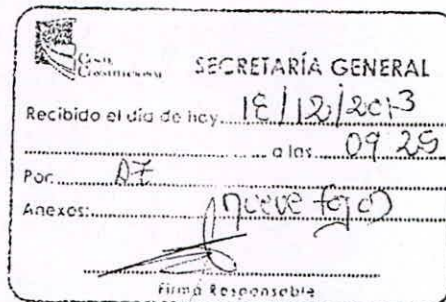 Corte
Constitucional
SECRETARÍA GENERAL
Recibido el día de hoy 18/12/2013
a las 09 25
Por: DZ
Anexos: nueve fojas
Firma Responsable